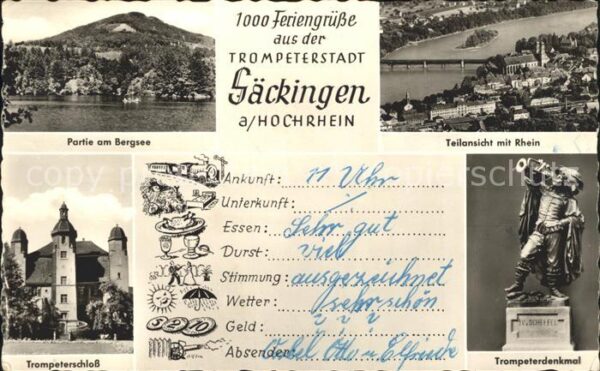 1000 Feriengrüße
aus der
TROMPETERSTADT
Säckingen
a/HOCHRHEIN
Partie am Bergsee
Teilansicht mit Rhein
Ankunft: 11 Uhr
Unterkunft: /
Essen: Sehr gut
Durst: viel
Stimmung: ausgezeichnet
Wetter: sehr schön
Geld: ? ? ?
Absender: Onkel Otto u Elfriede
Trompeterschloß
Trompeterdenkmal